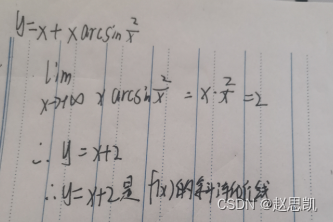 y=x+x arcsin 2/x
lim x→+∞ x arcsin 2/x = x·2/x =2
∴ y=x+2
∴ y=x+2是 f(x)的斜渐近线
CSDN @赵思凯